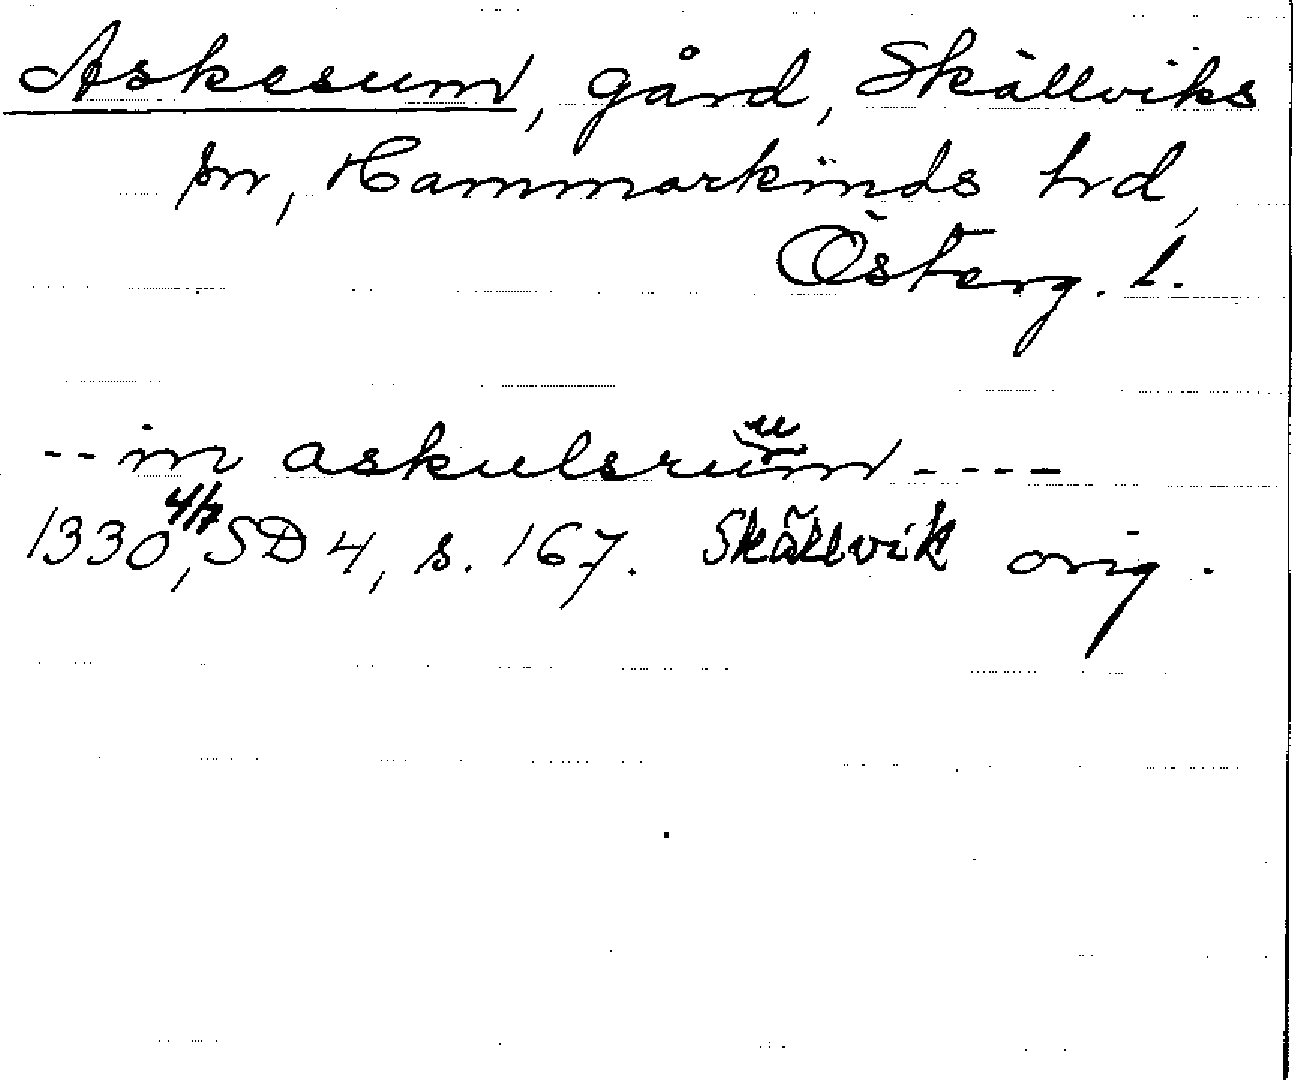 Askesum, gård, Skällviks
sn, Hammarkinds hrd,
Österg. l.
-- in askulsrum ----
1330 4/7, SD 4, s. 167. Skällvik orig.